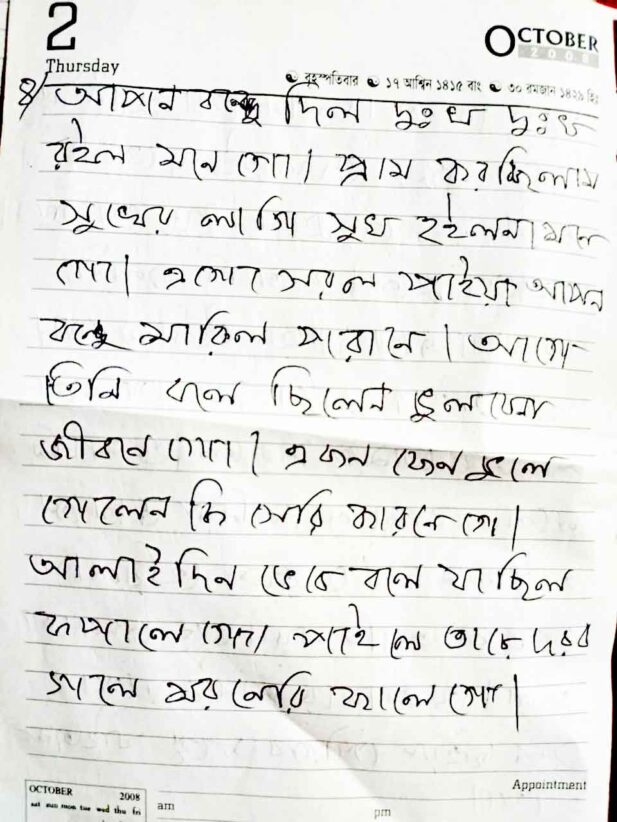 2
OCTOBER
2008
Thursday
বৃহস্পতিবার ১৭ আশ্বিন ১৪১৫ বাং ৩০ রমজান ১৪২৯ হিঃ
৪/ আপন বন্ধু দিল দুঃখ দুঃখ
রইল মনে গো। প্রাম করছিলাম
সুখের লাগি সুখ হইলনা মনে
গো। এগো সরল পাইয়া আপন
বন্ধু মারিল পরানে। আগে
তিনি বলে ছিলেন ভুলবেনা
জীবনে গো। এখন কেন ভুলে
গেলেন কি সেরি কারনে গো।
আলাই দিন ভেবে বলে যা ছিল
কপালে গো। পাইলে তারে দরব
গলে মরনেরি কালে গো।
Appointment
OCTOBER 2008
sat sun mon tue wed thu fri
am
pm